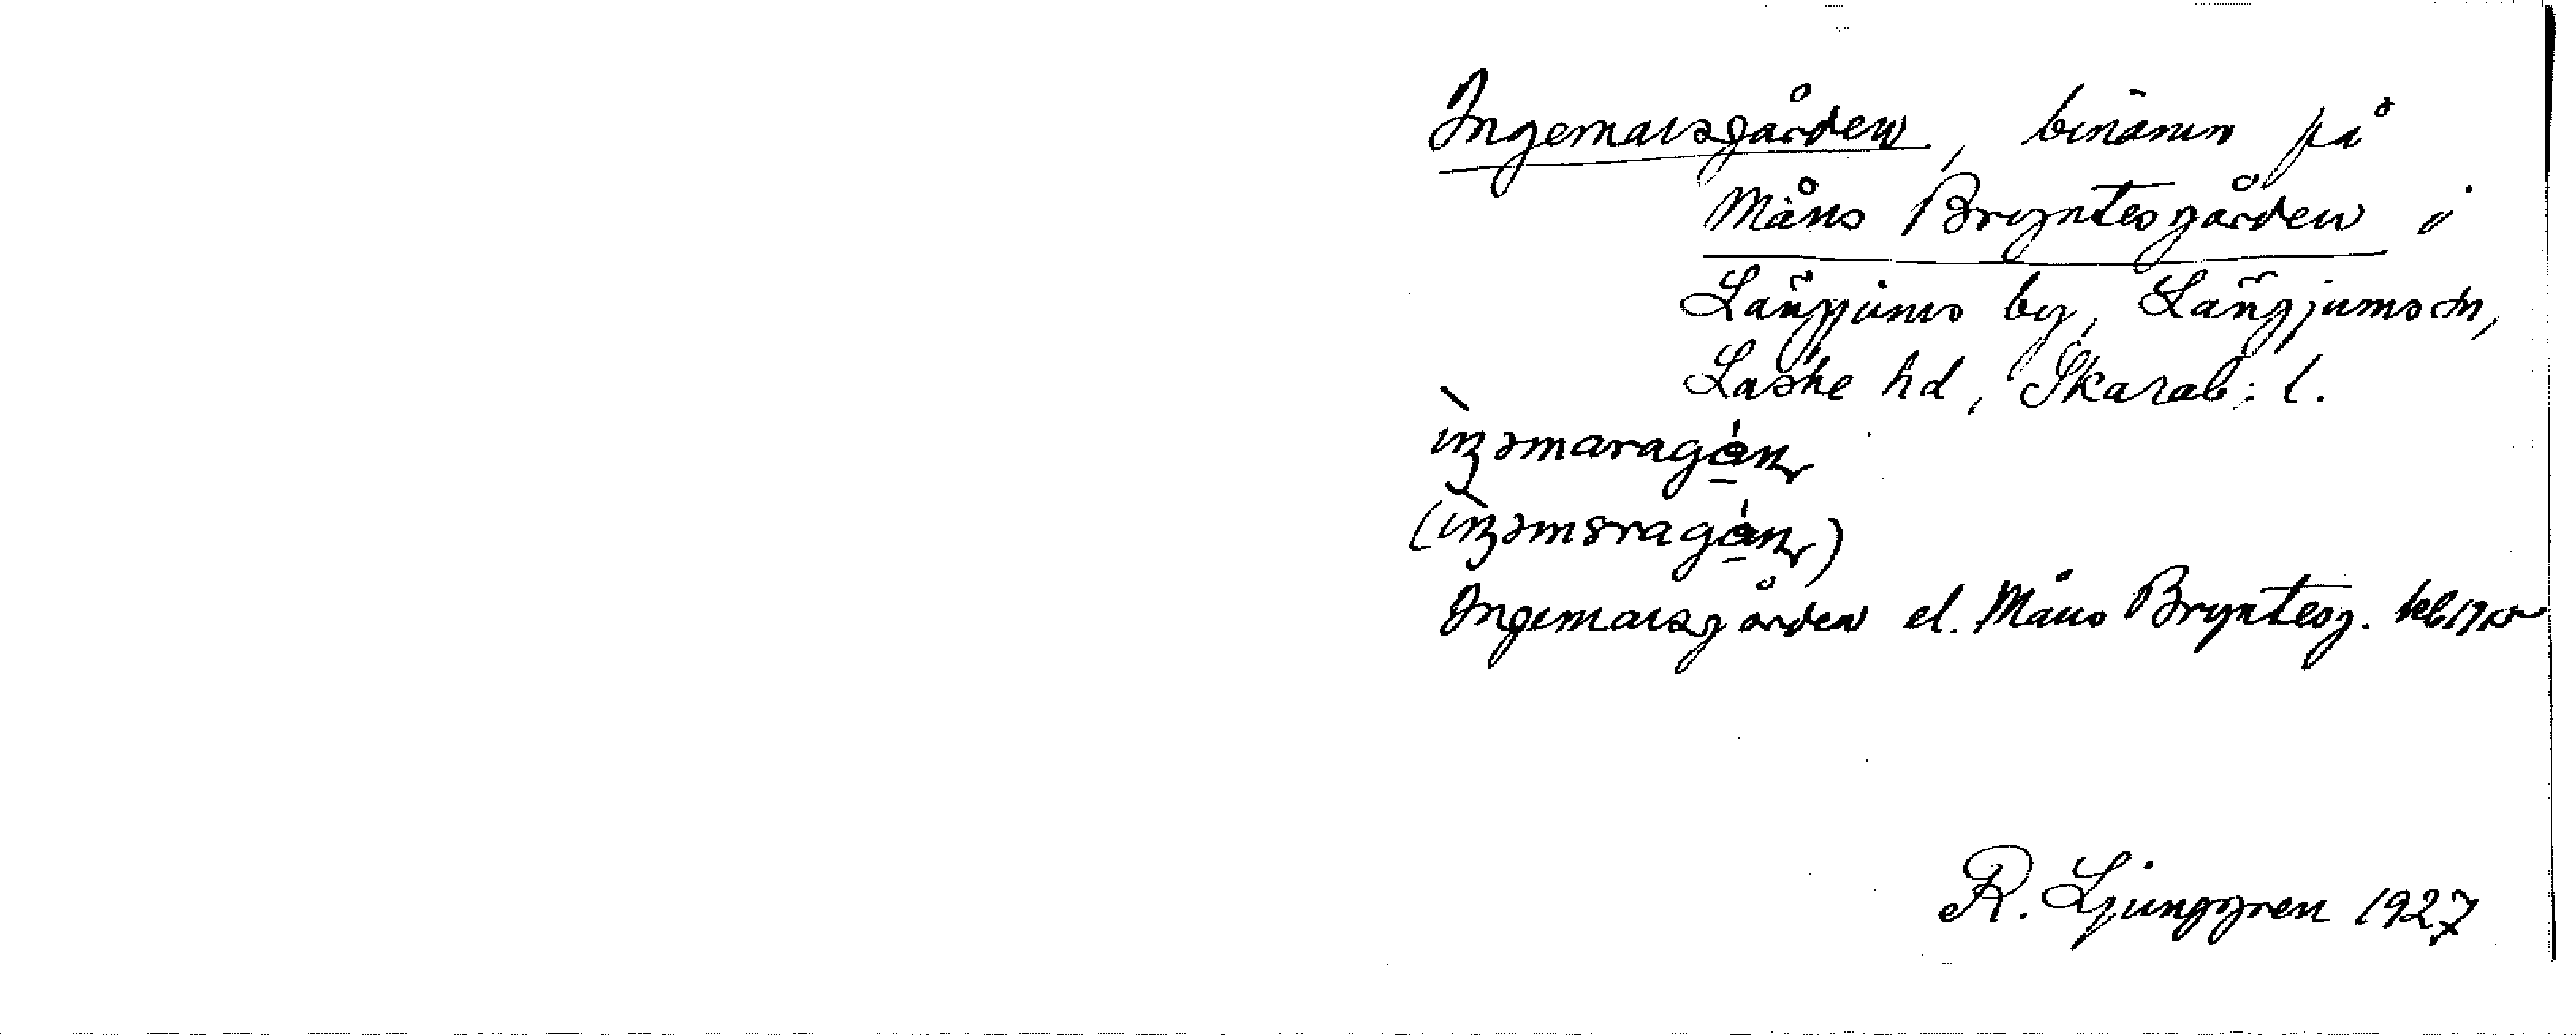 Ingemarsgården, binamn på
Måns Bryntesgården i
Långjums by, Långjums sn,
Laske hd, Skarab. l.
Ingemarsgården el. Måns Bryntesg.
R. Ljunggren 1927